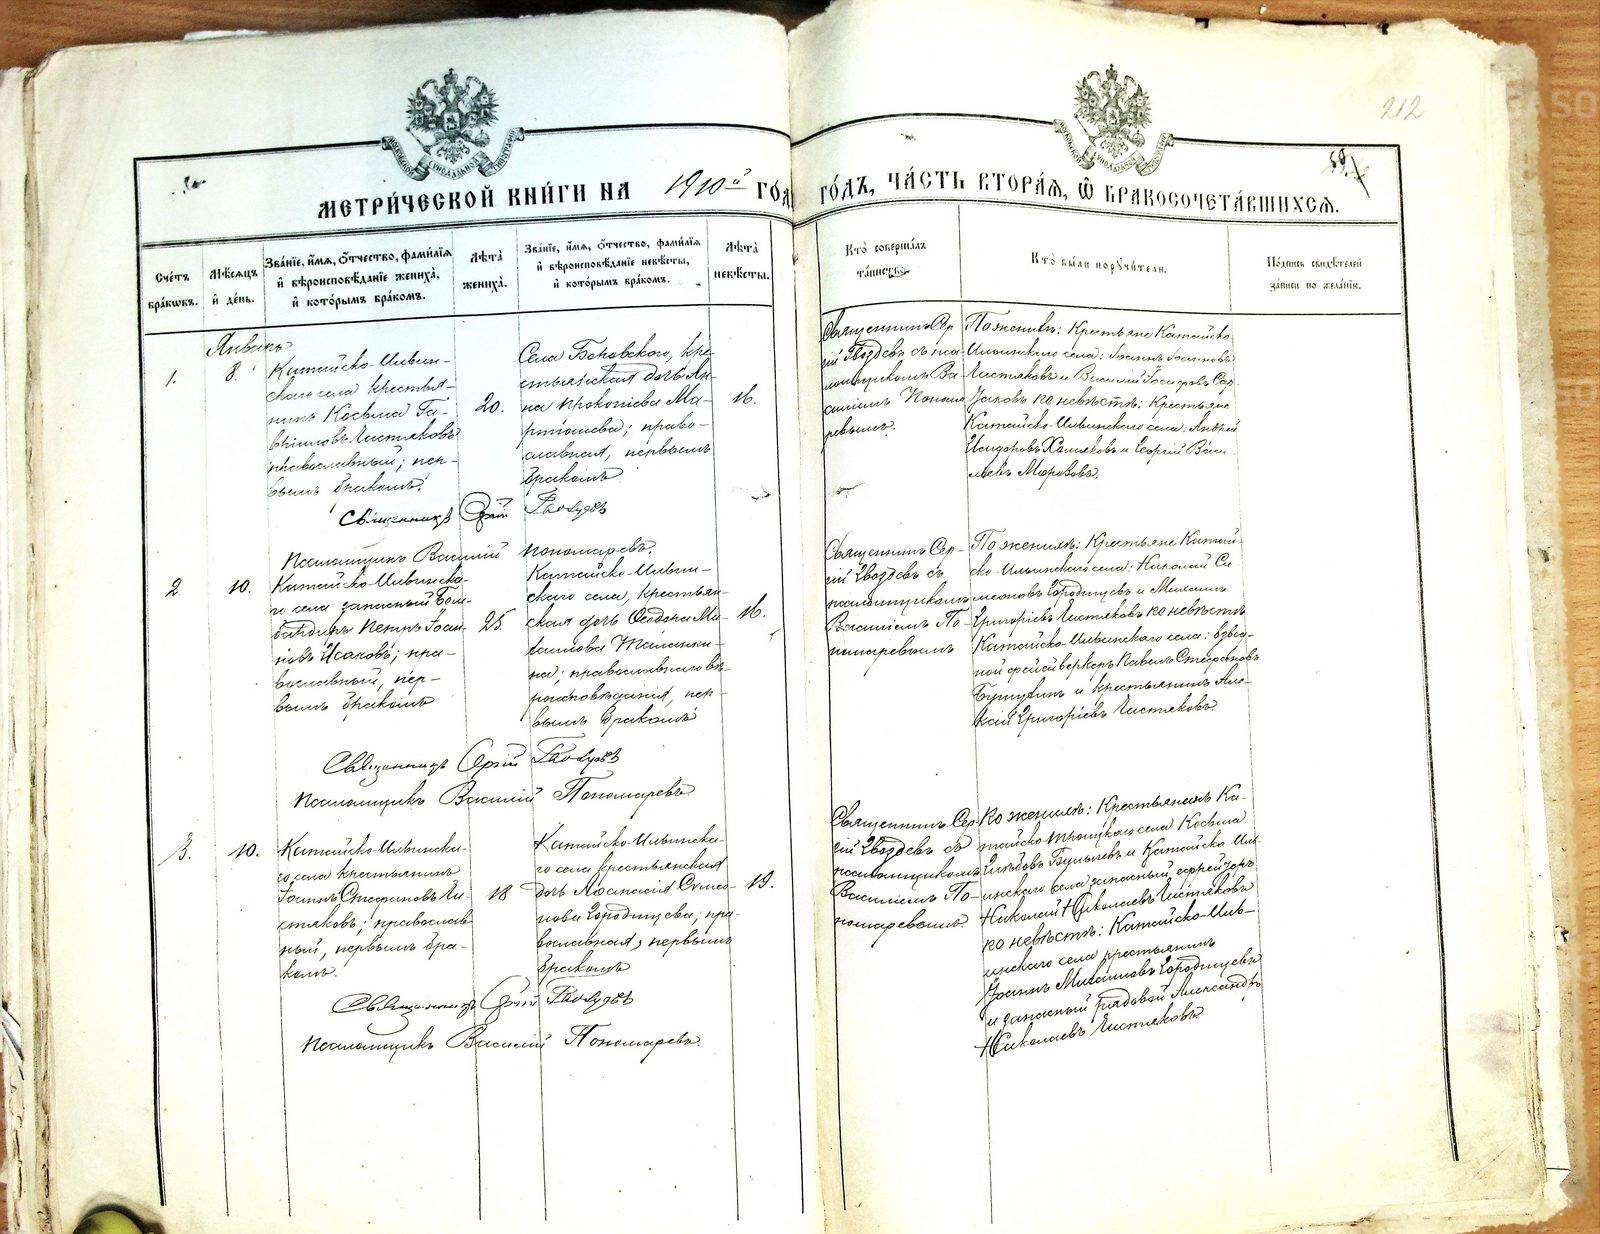 212
МЕТРИ́ЧЕСКОЙ КНИ́ГИ НА 1910й ГОДЪ, ЧА́СТЬ ВТОРА́Я, Ѿ БРАКОСОЧЕТА́ВШИХСЯ.
Сче́тъ бра́кѡвъ.
Мѣ́сяцъ и҆ де́нь.
Зва́нїе, и҆́мя, ѻ҆́тчество, фами́лїя
и҆ вѣроисповѣ́данїе жениха̀,
и҆ кото́рымъ бра́комъ.
Лѣ́та жениха̀.
Зва́нїе, и҆́мя, ѻ҆́тчество, фами́лїя
и҆ вѣроисповѣ́данїе невѣ́сты,
и҆ кото́рымъ бра́комъ.
Лѣ́та невѣ́сты.
Кто̀ соверша́лъ
та́инство.
Кто̀ бы́ли поручи́тели.
По́дпись свидѣ́телей
за́писи по жела́нїю.
Январь
1.
8.
Катайско-Ильин-
скаго села крестья-
нинъ Косьма Га-
вріиловъ Чистяковъ
православный; пер-
вымъ бракомъ.
20.
Села Боровского, кре-
стьянская дочь Ан-
на Прокопіева Ма-
ртюшева; право-
славная, первымъ
бракомъ
16.
Священникъ Сер-
гій Гвоздевъ съ пса-
ломщикомъ Ва-
силіемъ Понома-
ревымъ.
По женихѣ: Крестьяне Катайско-
Ильинского села: Іоаннъ Іоанновъ
Чистяковъ и Василій Іосифовъ
по невѣстѣ: Крестьяне
Катайско-Ильинского села: Андрей
Исидоровъ и Георгій Васи-
льевъ Морозовъ.
Священникъ Сергій Гвоздевъ
Псаломщикъ Василій Пономаревъ.
2.
10.
Катайско-Ильинска-
го села запасный бом-
бандиръ Петръ Іоан-
новъ Исаковъ; пра-
вославный, пер-
вымъ бракомъ
25.
Катайско-Ильин-
скаго села, крестьян-
ская дочь Ѳеодора Ми-
хаилова
на; православнаго вѣ-
роисповѣданія, пер-
вымъ бракомъ
16.
Священникъ Сер-
гій Гвоздевъ съ
псаломщикомъ
Василіемъ По-
номаревымъ
По женихѣ: Крестьяне Катай-
ско-Ильинского села: Николай Си-
меоновъ Городищевъ и Михаилъ
Григоріевъ Чистяковъ по невѣстѣ
Катайско-Ильинского села: взвод-
ной фейерверкеръ Павелъ Стефановъ
и крестьянинъ Але-
ксій Григоріевъ Чистяковъ.
Священникъ Сергій Гвоздевъ
Псаломщикъ Василій Пономаревъ
3.
10.
Катайско-Ильинска-
го села крестьянинъ
Іоаннъ Стефановъ Чи-
стяковъ; православ-
ный, первымъ бра-
комъ.
18
Катайско-Ильинска-
го села крестьянская
дочь Аѳанасія Симео-
нова Городищева; пра-
вославная, первымъ
бракомъ
19.
Священникъ Сер-
гій Гвоздевъ съ
псаломщикомъ
Василіемъ По-
номаревымъ.
По женихѣ: Крестьянинъ Ка-
тайско-Троицкаго села Косьма
Глѣбовъ и Катайско-Иль-
инского села запасный ефрейторъ
Николай Николаевъ Чистяковъ
по невѣстѣ: Катайско-Иль-
инскаго села крестьянинъ
Іоаннъ Михаиловъ Городищевъ
и запасный рядовой Александръ
Николаевъ Чистяковъ.
Священникъ Сергій Гвоздевъ
Псаломщикъ Василій Пономаревъ.